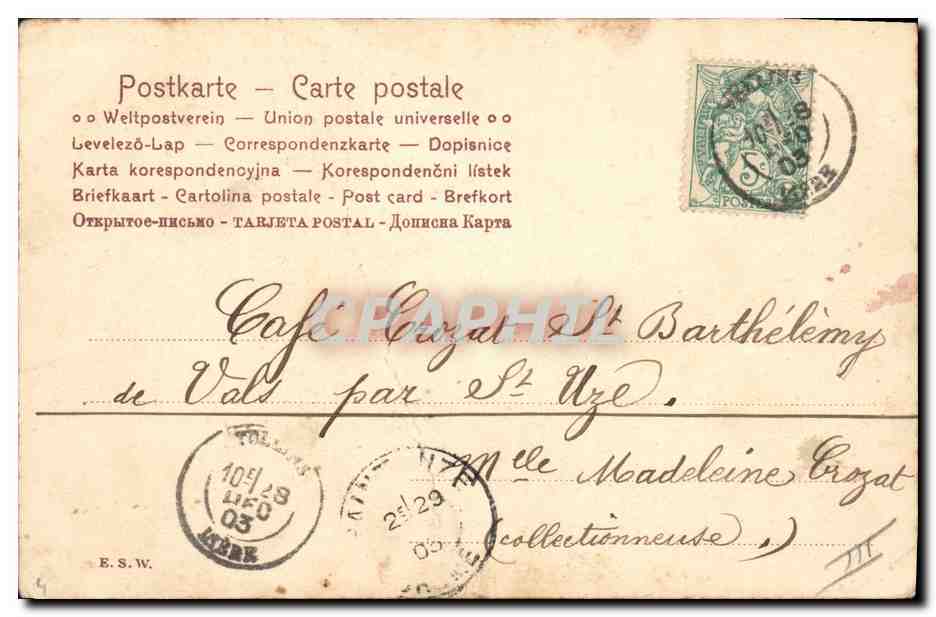 Postkarte – Carte postale
Weltpostverein — Union postale universelle
Levelező-Lap — Correspondenzkarte — Dopisnice
Karta korespondencyjna — Korespondenční lístek
Briefkaart - Cartolina postale - Post card - Brefkort
Открытое-письмо - TARJETA POSTAL - Дописна Карта
TULLINS
10 28
DEC
03
ISÈRE
5c
POSTES
CPAPHIL
Café Crozat St Barthélémy
de Vals par St Uze.
Mlle Madeleine Crozat
(collectionneuse.)
TULLINS
10 28
DEC
03
ISÈRE
SAINT UZE
2 29
03
E. S. W.